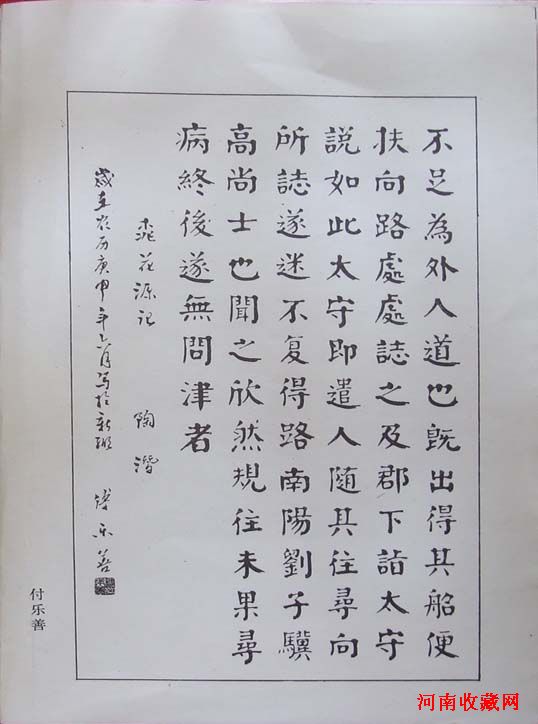 不足為外人道也既出得其船便
扶向路處處誌之及郡下詣太守
説如此太守即遣人隨其往尋向
所誌遂迷不复得路南陽劉子驥
高尚士也聞之欣然規往未果尋
病終後遂無問津者
桃花源記 陶潛
歲在农历庚申年六月写於新鄉 傅乐善
付乐善
河南收藏网